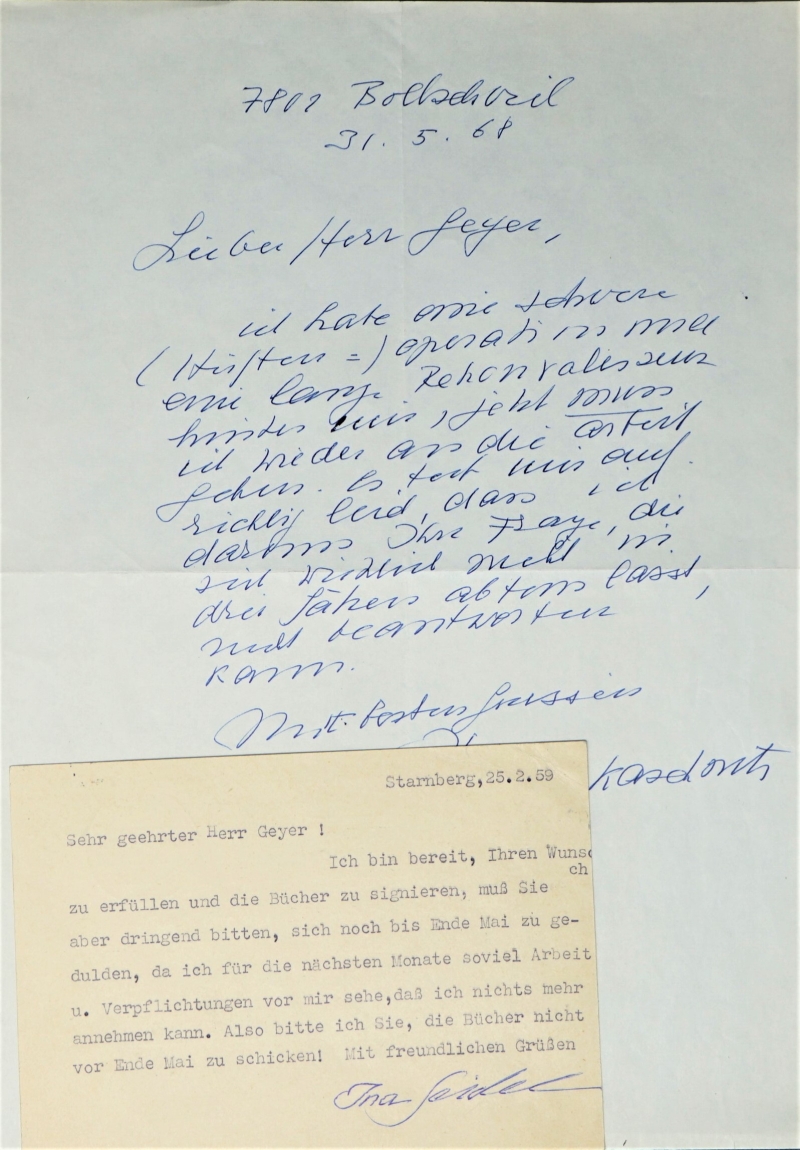 7801 Bollschweil
31. 5. 68
Lieber Herr Geyer,
ich habe eine schwere
(Hüften=) operation und
eine lange Rekonvaleszenz
hinter mir, jetzt muss
ich wieder an die Arbeit
gehen. Es tut mir auf-
richtig leid, dass ich
darum Ihre Frage, die
sich wirklich nicht in
drei Sätzen abtun lässt,
nicht beantworten
kann.
Mit besten Grüssen
Kaschnitz
Starnberg,25.2.59
Sehr geehrter Herr Geyer !
Ich bin bereit, Ihren Wunsc
ch
zu erfüllen und die Bücher zu signieren, muß Sie
aber dringend bitten, sich noch bis Ende Mai zu ge-
dulden, da ich für die nächsten Monate soviel Arbeit
u. Verpflichtungen vor mir sehe,daß ich nichts mehr
annehmen kann. Also bitte ich Sie, die Bücher nicht
vor Ende Mai zu schicken! Mit freundlichen Grüßen
Ina Seidel